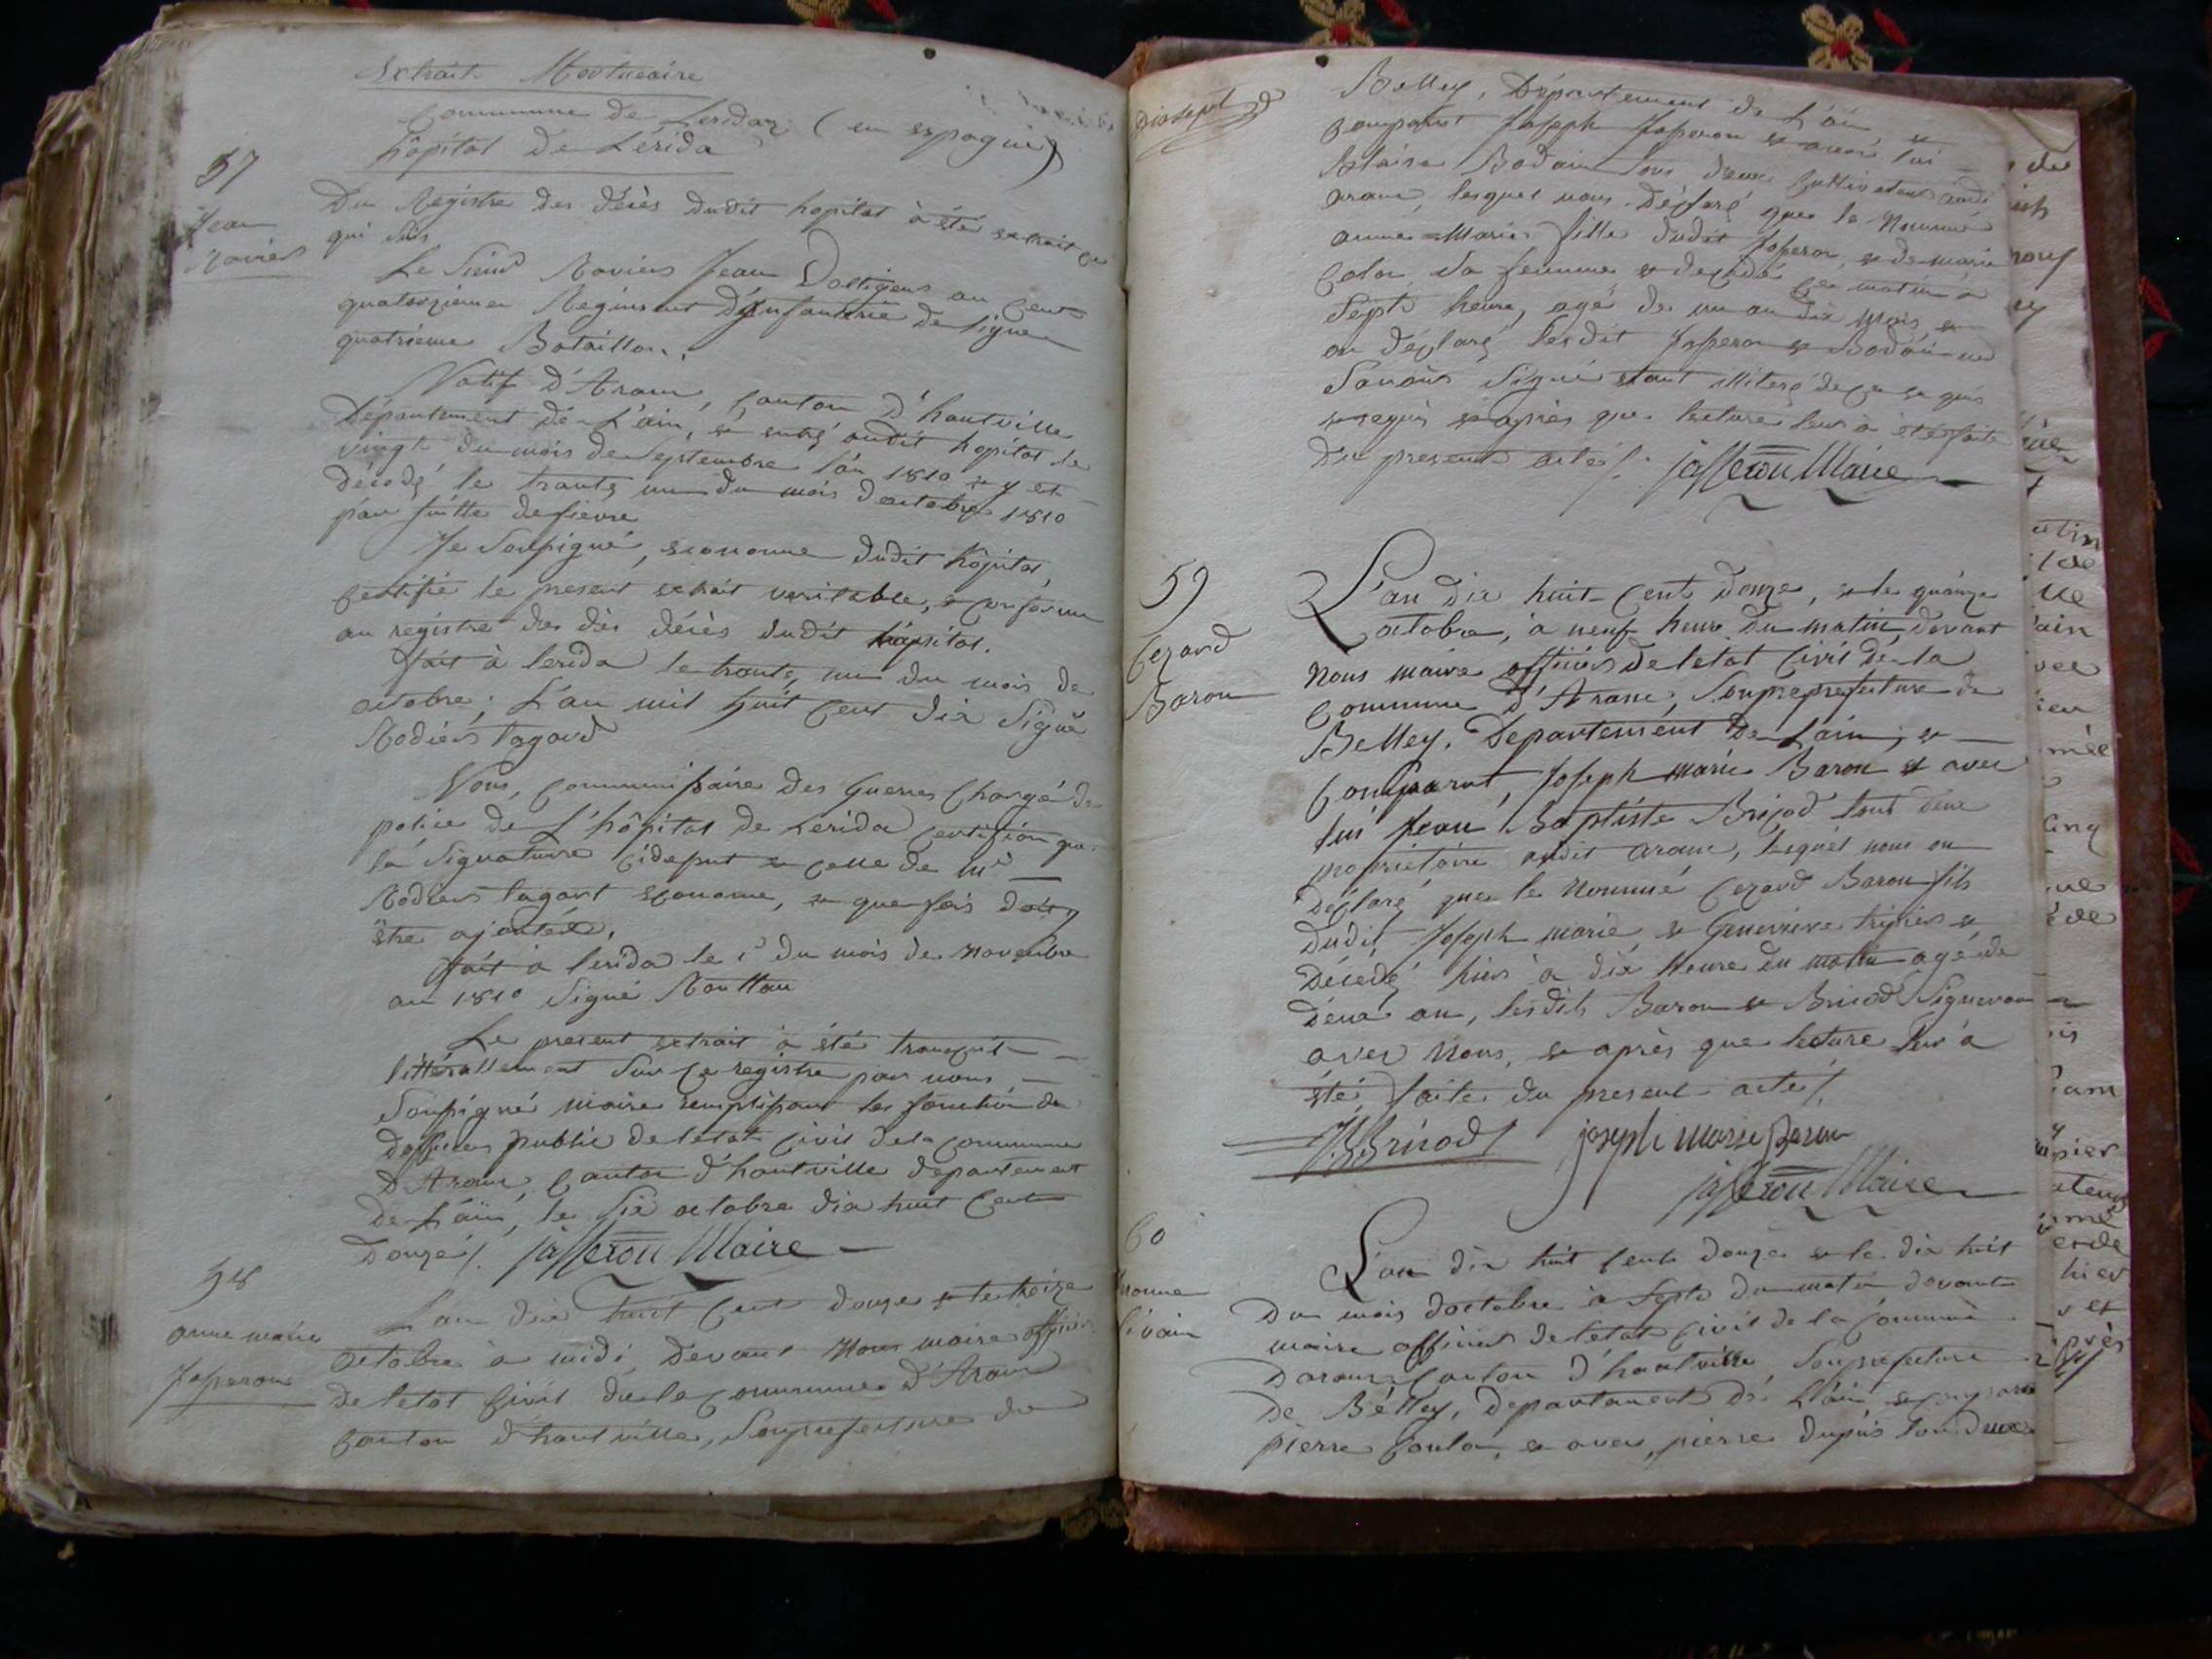 Extrait Mortuaire
Commune de Leridaz (en espagne)
hôpital de Lérida
57
Jean
Raviers
Du Régistre des décès dudit hopital à été extrait ce
qui suit
Le Sieur Raviers Jean Voltigeur au Cent
quatorzieme Regiment D'infanterie de ligne
quatrieme Bataillon.
Natif d'Aranc, Canton D'hautville
Département de L'ain, est entré audit hopital le
vingt du mois de Septembre l'an 1810 et y est
décedé le trante un du mois d'octobre 1810
par suitte de fievre
Je Soussigné, econome dudit hôpital,
certifie le present extrait veritable, et conforme
au registre des dés décès dudit hôpital.
fait à lerida le trante un du mois de
octobre; L'an mil huit Cent dix Signé
Rodiers tagard
Nous, Commissaire des Guerres Chargé de
police de L'hôpital de Lerida certifion que
la Signature cidessut est celle de Mr
Rodiers tagart econome, et que fois doit y
être ajoutée.
fait à lerida le 1r du mois de novembre
an 1810 Signé Routtau
Le present extrait à été transcrit
littérallement Sur ce registre par nous
Soussigné maire remplissant les fonction de
dofficier public de letat Civil de la commune
d'Aranc, Canton d'hautville departement
de L'ain, le Six octobre dix huit Cent
Douze /. jasseron Maire
58
anne marie
Jasseron
Lan dix huit Cent douze et le treize
octobre à midi, devant Nous maire officier
de letat Civil de la Commune d'Aranc
Canton d'hautville, Souprefecture de
Dixsept
Belley, Département de L'ain, et
comparut Joseph Jasseron et avec lui
Blaise Bodain tous deux Cultivateur audit
aranc, lesquel nous déclaré que la Nommé
anne Marie fille dudit Jasseron, et de marie
Colon sa femme et decedé ce matin à
Septs heure, agé de un an dix mois, et
on déclaré lesdit Jasseron et Bodain ne
Savoir Signé étant illiteré de ce ce quis
et requis et après que lecture leur à été faite
Du present acte /. jasseron Maire
59
Cezard
Baron
L'an Dix huit Cent douze, et le quinze
octobre, à neuf heure du matin, devant
Nous maire officier de letat Civil de la
Commune d'Aranc, Soupreprefecture de
Belley, Departement de Lain, et
Comparut, Joseph marie Baron et avec
lui Jean Baptiste Brijod tout deux
propriétaire audit aranc, lequél nous on
Déclaré que le nommé Cezard Baron fils
dudit Joseph marie et Genevieve triphier et
Décedé hier à dix heure du matin agé de
deux an, lesdits Baron et Bricod Signeron
avec Nous, et après que lecture leur à
été faite du present acte /.
JBBricod joseph Marie Baron
jasseron Maire
60
L'an dix huit Cent douze et le dix huit
Du mois doctobre à Septs du matin devant
maire officier de letat Civil de la Commune
Daranc Canton d'hautville Souprefecture
De Bélley, Departement de L'ain, et comparut
pierre Coulon, et avec, pierre Dupuis tou deux